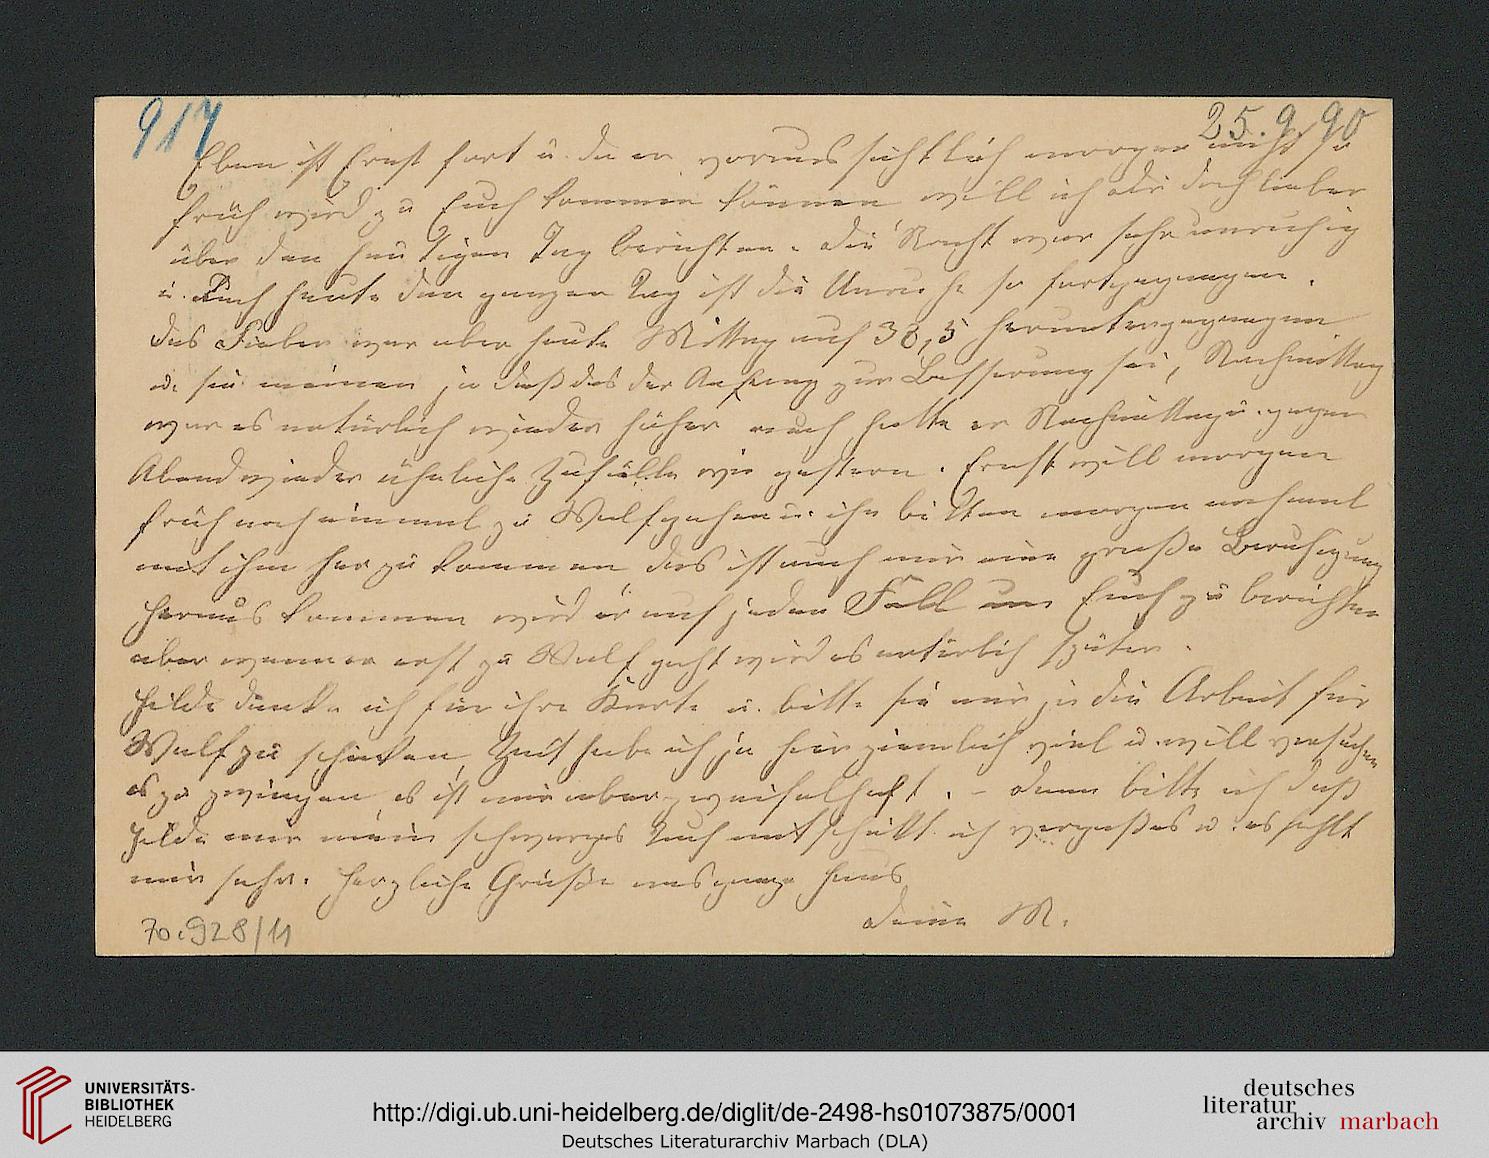 917
25.9.90
Eben ist Ernst fort u. da er voraussichtlich morgen nicht so
früh wird zu Euch kommen können will ich Dir doch lieber
über den heutigen Tag berichten. Die Nacht war sehr unruhig
u. auch heute den ganzen Tag ist die Unruhe so fortgegangen.
Das Fieber war aber heute Mittag auf 38,5 heruntergegangen
u. sie meinen ja daß das der Anfang zur Besserung sei, Nachmittag
war es natürlich wieder höher auch hatte er Nachmittag u. gegen
Abend wieder ähnliche Zufälle wie gestern. Ernst will morgen
früh noch einmal zu Wulf gehen u. ihn bitten morgen nochmal
mit ihm her zu kommen, das ist auch mir eine große Beruhigung
heraus kommen wird er auf jeden Fall um Euch zu berichten
aber wenn er erst zu Wulf geht wird es natürlich später.
Hilde danke ich für ihre Karte u. bitte sie mir ja die Arbeit für
Wulf zu schicken, Zeit habe ich ja hier ziemlich viel u. will versuchen
es zu zwingen, es ist mir aber zweifelhaft. – Dann bitte ich daß
Hilde mir mein schwarzes Tuch mitschickt ich vergaß es u. es fehlt
mir sehr. Herzliche Grüße ans ganze Haus
Deine M.
70.928/11
UNIVERSITÄTS-
BIBLIOTHEK
HEIDELBERG
http://digi.ub.uni-heidelberg.de/diglit/de-2498-hs01073875/0001
Deutsches Literaturarchiv Marbach (DLA)
deutsches
literatur
archiv marbach